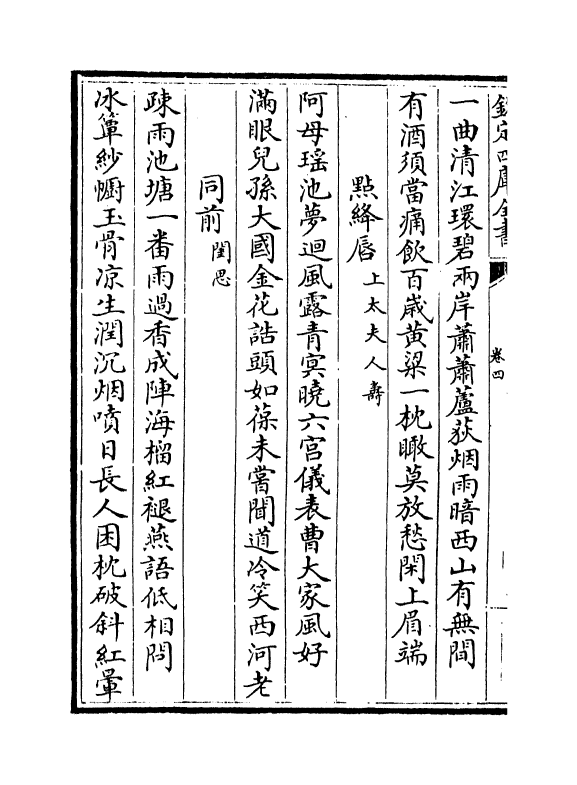 欽定四庫全書
卷四
一曲清江環碧兩岸蕭蕭蘆荻烟雨暗西山有無間
有酒須當痛飲百歲黄粱一枕瞰莫放愁閑上眉端
點絳唇上太夫人壽
阿母瑶池夢迴風露青冥曉六宫儀表曹大家風好
滿眼兒孫大國金花誥頭如葆未嘗聞道冷笑西河老
同前閨思
疎雨池塘一番雨過香成陣海榴紅褪燕語低相問
冰簟紗㡡玉骨凉生潤沉烟噴日長人困枕破斜紅暈